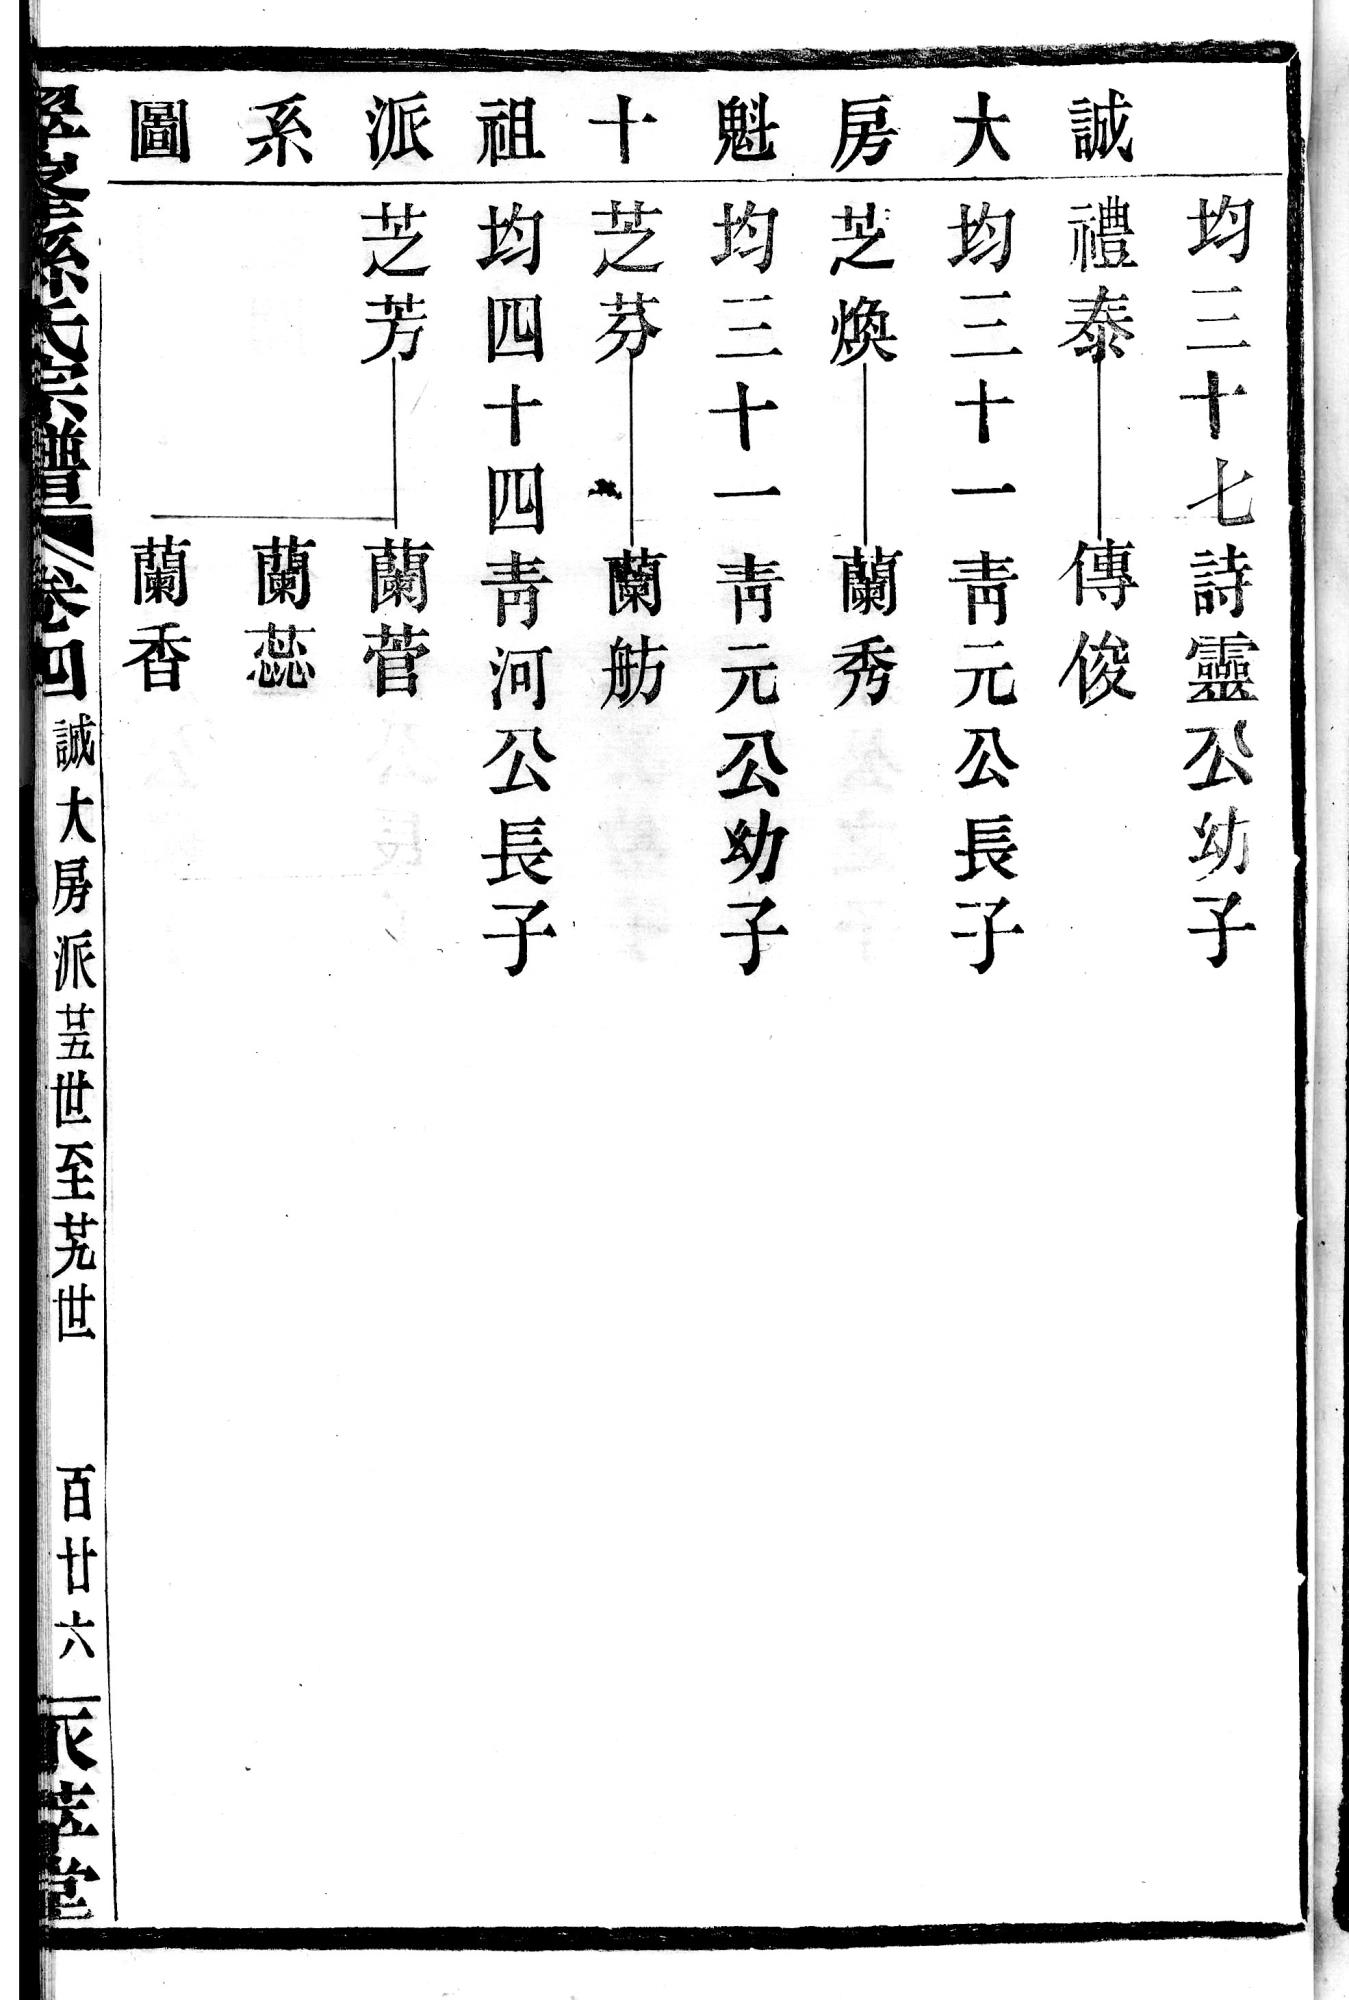 誠大房魁十祖派系圖
均三十七詩靈公幼子
禮泰 傳俊
均三十一靑元公長子
芝煥 蘭秀
均三十一靑元公幼子
芝芬 蘭舫
均四十四靑河公長子
芝芳 蘭菅
蘭蕊
蘭香
孫氏宗譜 卷四 誠大房派 廿五世至廿九世 百廿六 堂